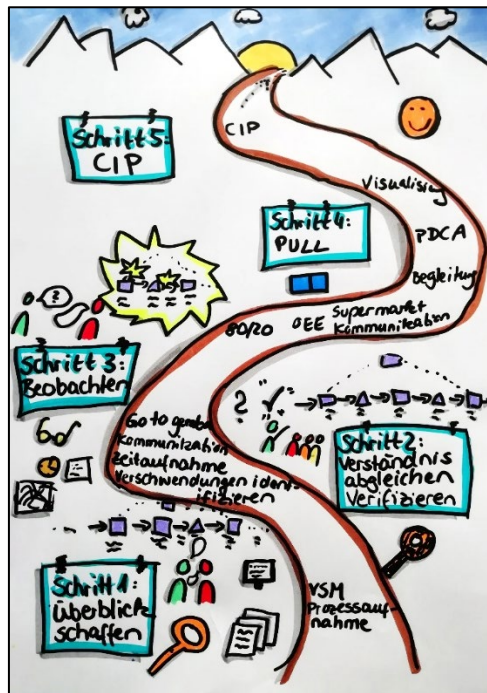 Schritt 5:
CIP
CIP
Visualising
Schritt 4:
PULL
PDCA
Begleitung
80/20
OEE
Supermarkt
Kommunikation
?
Schritt 3:
Beobachten
?
Go to gemba
Kommunikation
Zeitaufnahme
Verschwendungen ident-
ifizieren
Schritt 2:
Verständnis
abgleichen
Verifizieren
Schritt 1:
Überblick
schaffen
VSM
Prozessauf-
nahme